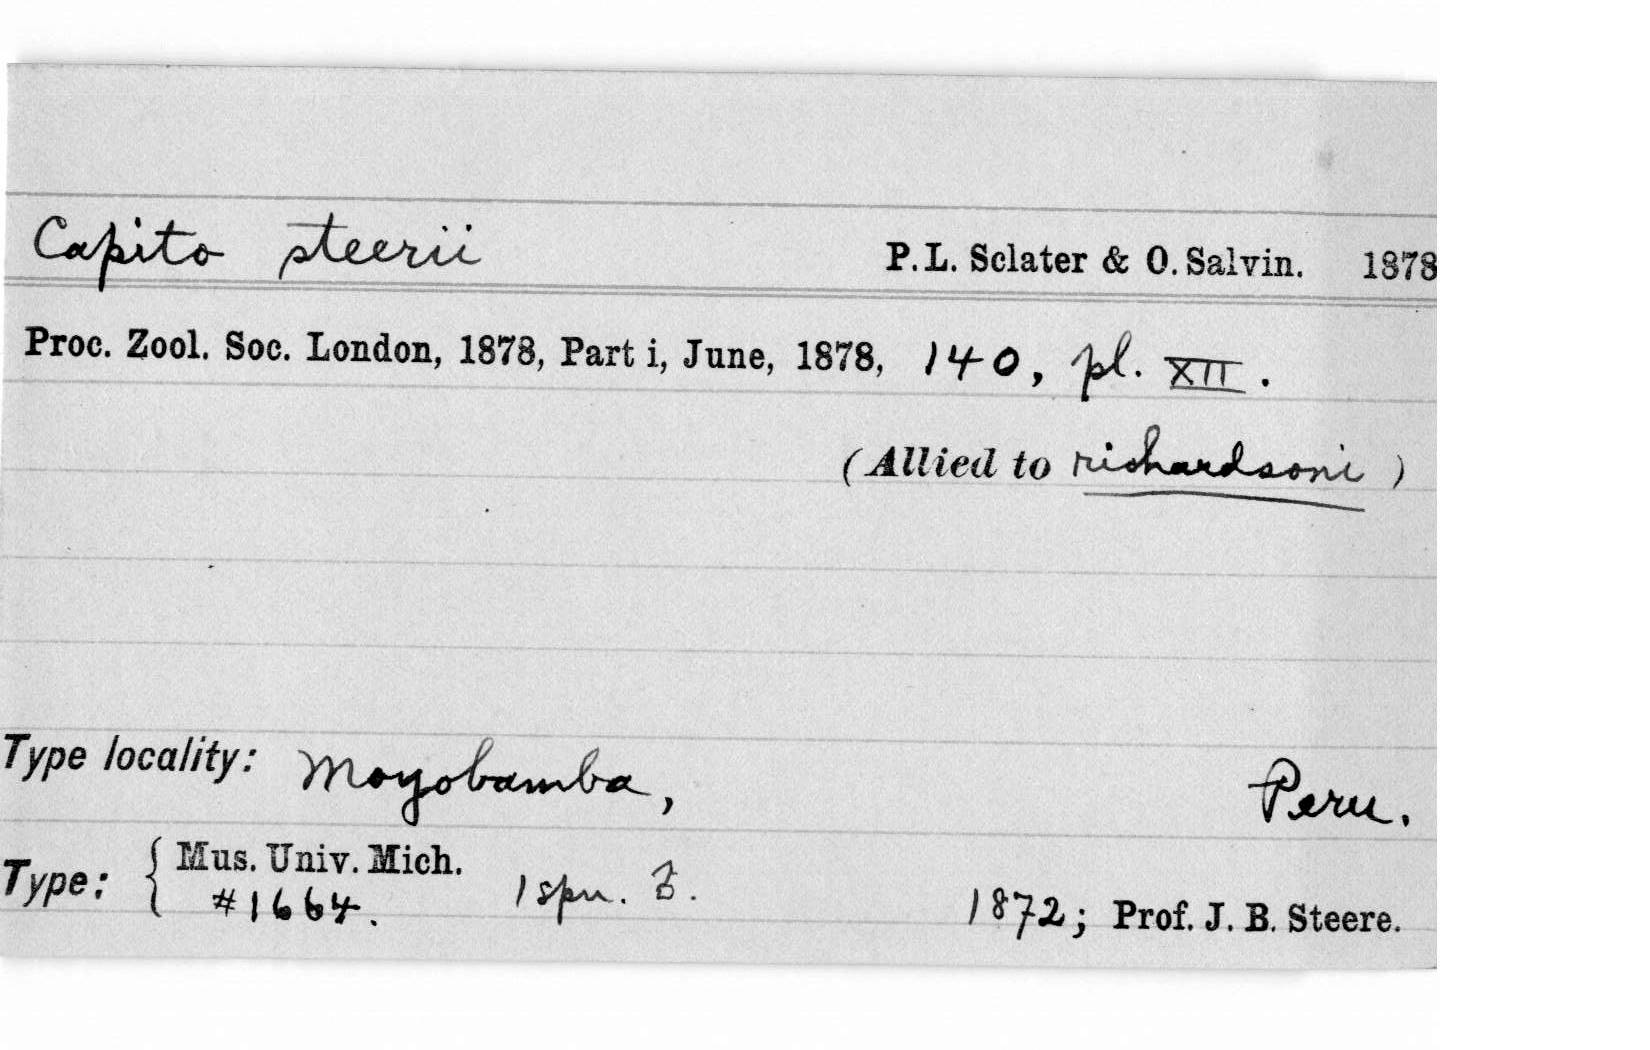 Capito steerii P. L. Sclater & O. Salvin. 1878
Proc. Zool. Soc. London, 1878, Part i, June, 1878, 140, pl. XII.
(Allied to richardsoni)
Type locality: Moyobamba, Peru.
Type: { Mus. Univ. Mich.
#1664. 1 spn. 1872; Prof. J. B. Steere.